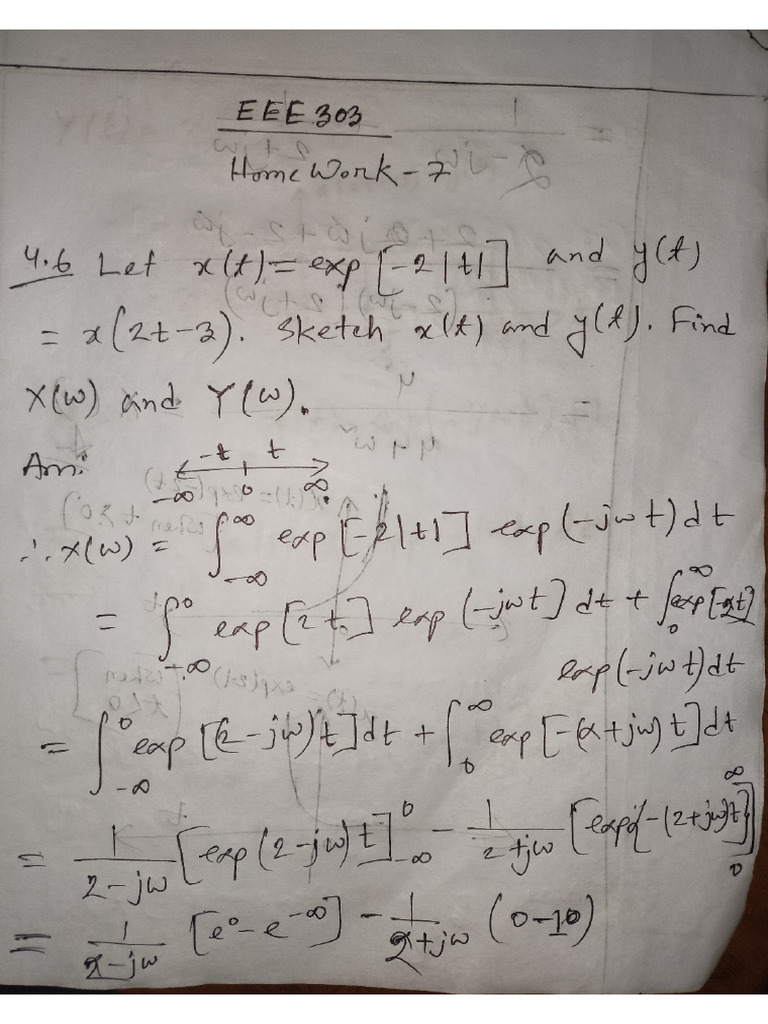 EEE 303
Home Work - 7
4.6 Let x(t) = exp [-2|t|] and y(t)
= x(2t-3). Sketch x(t) and y(t). Find
X(ω) and Y(ω).
Ans:
-t t
-∞ 0 ∞
∴ X(ω) = ∫_{-∞}^{∞} exp [-2|t|] exp (-jωt) dt
= ∫_{-∞}^{0} exp [2t] exp [-jωt] dt + ∫_{0}^{∞} exp [-2t]
exp (-jωt) dt
= ∫_{-∞}^{0} exp [(2-jω)t] dt + ∫_{0}^{∞} exp [-(2+jω)t] dt
= 1/(2-jω) [exp (2-jω)t]_{-∞}^{0} - 1/(2+jω) [exp{-(2+jω)t}]_{0}^{∞}
= 1/(2-jω) [e^0 - e^{-∞}] - 1/(2+jω)